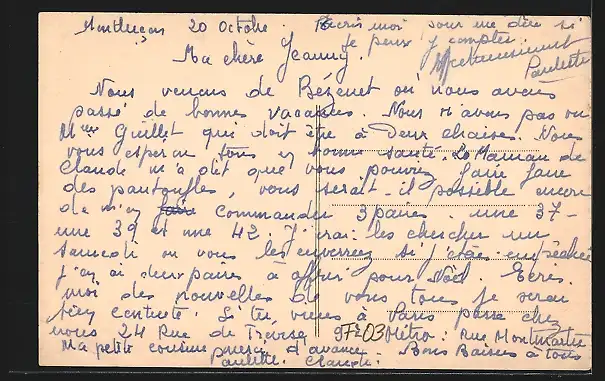 Montluçon 20 Octobre. Ecris moi pour me dire si
je peux y compter.
Affectueusement
Paulette
Ma chère Jeanny.
Nous venons de Bézenet où nous avons
passé de bonnes vacances. Nous n'avons pas vu
Mme Guillet qui doit être à Deux chaises. Nous
vous espérons tous en bonne santé. La Maman de
Claude m'a dit que vous pouviez faire faire
des pantoufles, vous serait-il possible encore
de m'en faire commander 3 paires. une 37 -
une 39 et une 42. J'irai les chercher un
samedi ou vous les enverrez si j'étais empêchée
j'en ai deux paires à offrir pour Noël. Ecris
moi des nouvelles de vous tous je serai
bien contente. Si tu viens à Paris passe chez
nous 24 Rue de Trévise 97203 Métro: Rue Montmartre
Ma petite cousine merci d'avance. Bons Baisers à tous
Paulette. Claude.